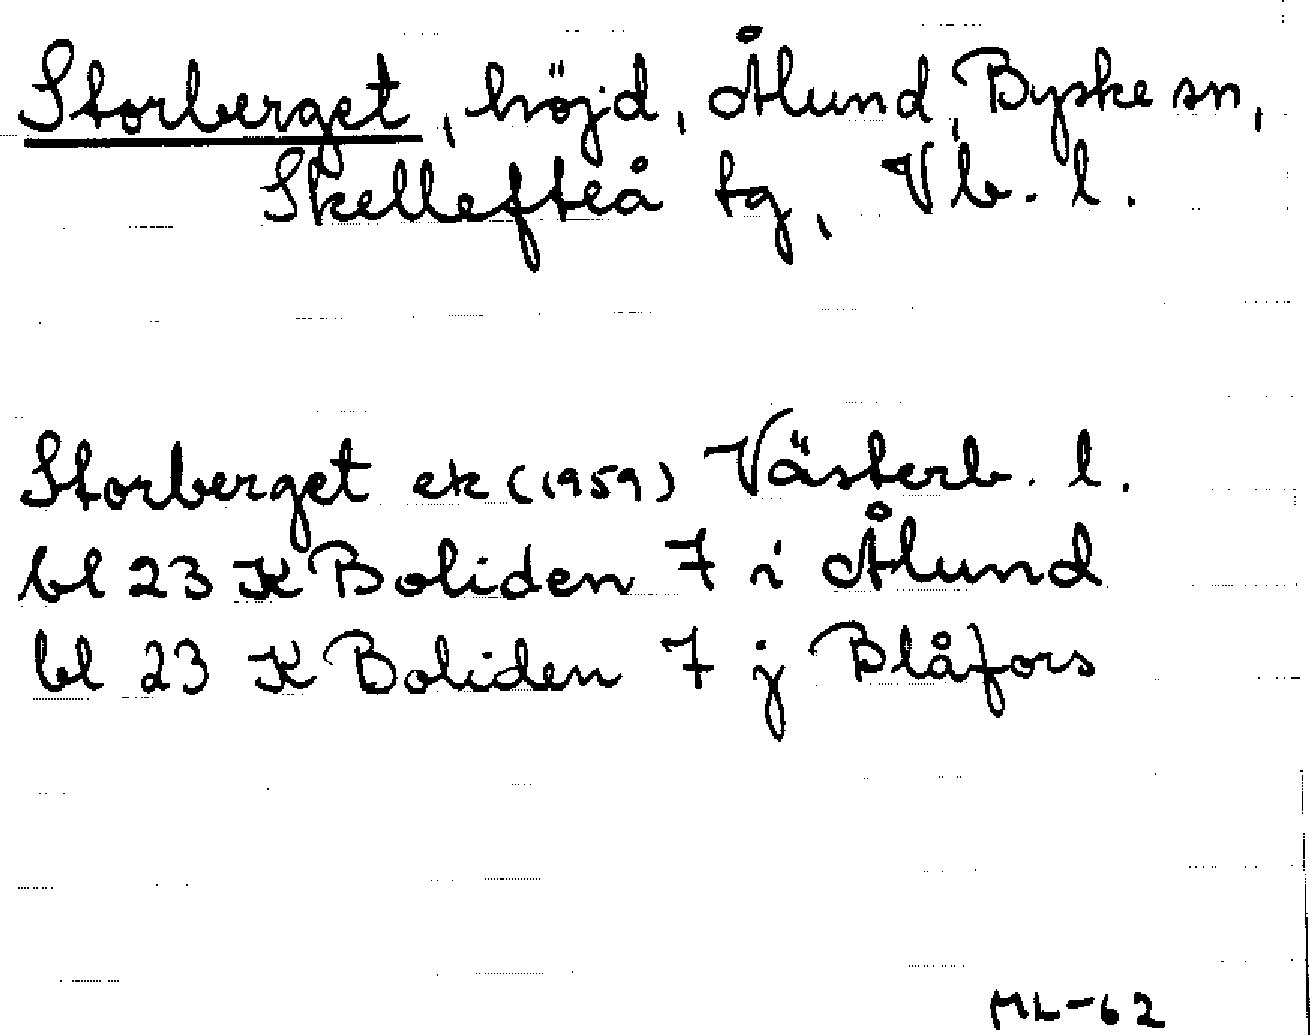 Storberget, höjd, Ålund, Byske sn,
Skellefteå tg, Vb. l.
Storberget ek (1959) Västerb. l.
bl 23 K Boliden 7 i Ålund
bl 23 K Boliden 7 j Blåfors
ML-62